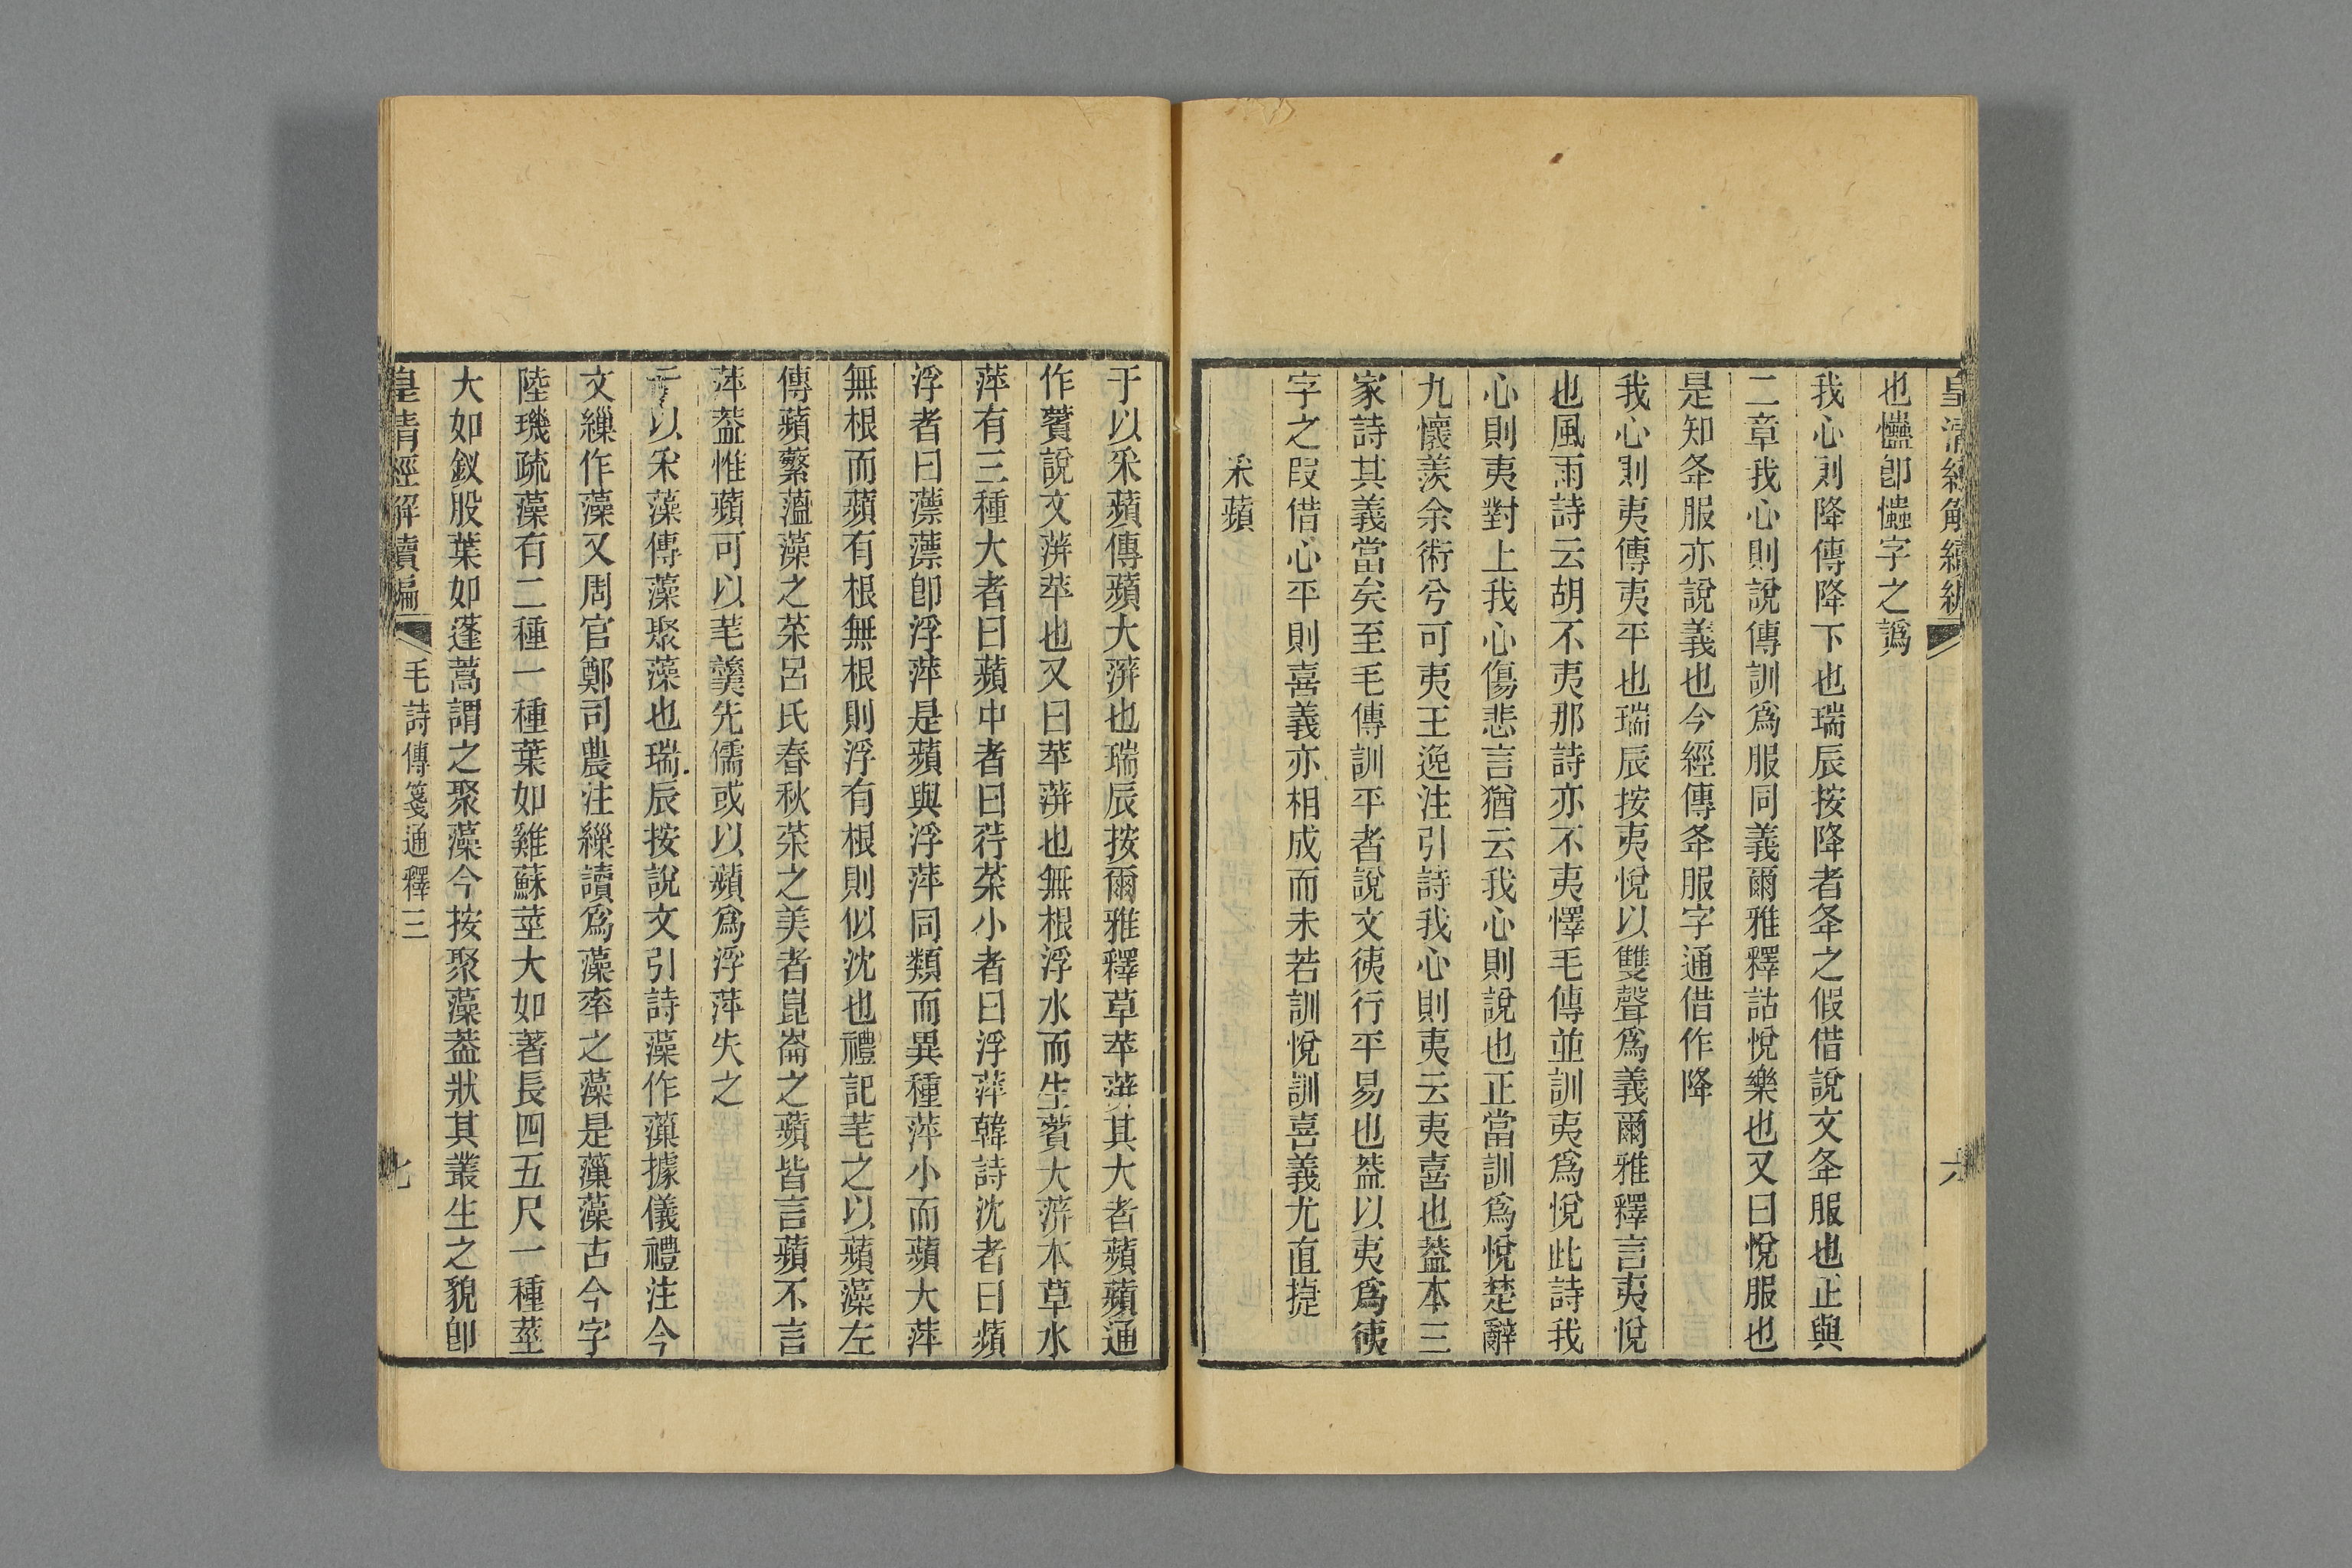 皇清經解續編
六
也㦫卽㦜字之譌
我心則降傳降下也瑞辰按降者夅之假借說文夅服也正與
二章我心則說傳訓爲服同義爾雅釋詁悅樂也又曰悅服也
是知夅服亦說義也今經傳夅服字通借作降
我心則夷傳夷平也瑞辰按夷悅以雙聲爲義爾雅釋言夷悅
也風雨詩云胡不夷那詩亦不夷懌毛傳並訓夷爲悅此詩我
心則夷對上我心傷悲言猶云我心則說也正當訓爲悅楚辭
九懷羨余術兮可夷王逸注引詩我心則夷云夷喜也葢本三
家詩其義當矣至毛傳訓平者說文徚行平易也葢以夷爲徚
字之叚借心平則喜義亦相成而未若訓悅訓喜義尤直捷
采蘋
于以采蘋傳蘋大蓱也瑞辰按爾雅釋草苹蓱其大者蘋蘋通
作薲說文蓱苹也又曰苹蓱也無根浮水而生薲大蓱本草水
萍有三種大者曰蘋中者曰荇菜小者曰浮萍韓詩沈者曰蘋
浮者曰薸薸卽浮萍是蘋與浮萍同類而異種萍小而蘋大萍
無根而蘋有根無根則浮有根則似沈也禮記芼之以蘋藻左
傳蘋蘩薀藻之菜呂氏春秋菜之美者崑崙之蘋皆言蘋不言
萍葢惟蘋可以芼羹先儒或以蘋爲浮萍失之
于以采藻傳藻聚藻也瑞辰按說文引詩藻作薻據儀禮注今
文繅作藻又周官鄭司農注繅讀爲藻率之藻是薻藻古今字
陸璣疏藻有二種一種葉如雞蘇莖大如著長四五尺一種莖
大如釵股葉如蓬蒿謂之聚藻今按聚藻葢狀其叢生之貌卽
皇清經解續編
毛詩傳箋通釋三
七